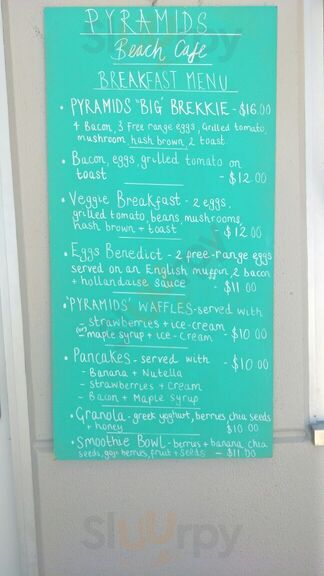 PYRAMIDS
Beach Cafe
BREAKFAST MENU
• PYRAMIDS "BIG" BREKKIE - $16.00
4 Bacon, 3 Free range eggs, Grilled tomato,
mushroom, hash brown, 2 toast
• Bacon, eggs, grilled tomato on
toast - $12.00
• Veggie Breakfast - 2 eggs,
grilled tomato, beans, mushrooms,
hash brown + toast - $12.00
• Eggs Benedict - 2 free-range eggs
served on an English muffin, 2 bacon
+ hollandaise sauce - $11.00
• 'PYRAMIDS' WAFFLES - served with
- strawberries + ice-cream
(or) maple syrup + ice-cream - $10.00
• Pancakes - served with - $10.00
- Banana + Nutella
- Strawberries + Cream
- Bacon + Maple Syrup
• Granola - greek yoghurt, berries, chia seeds
+ honey $10.00
• Smoothie Bowl - berries + banana, chia
seeds, goji berries, fruit + seeds - $11.00
Sluurpy